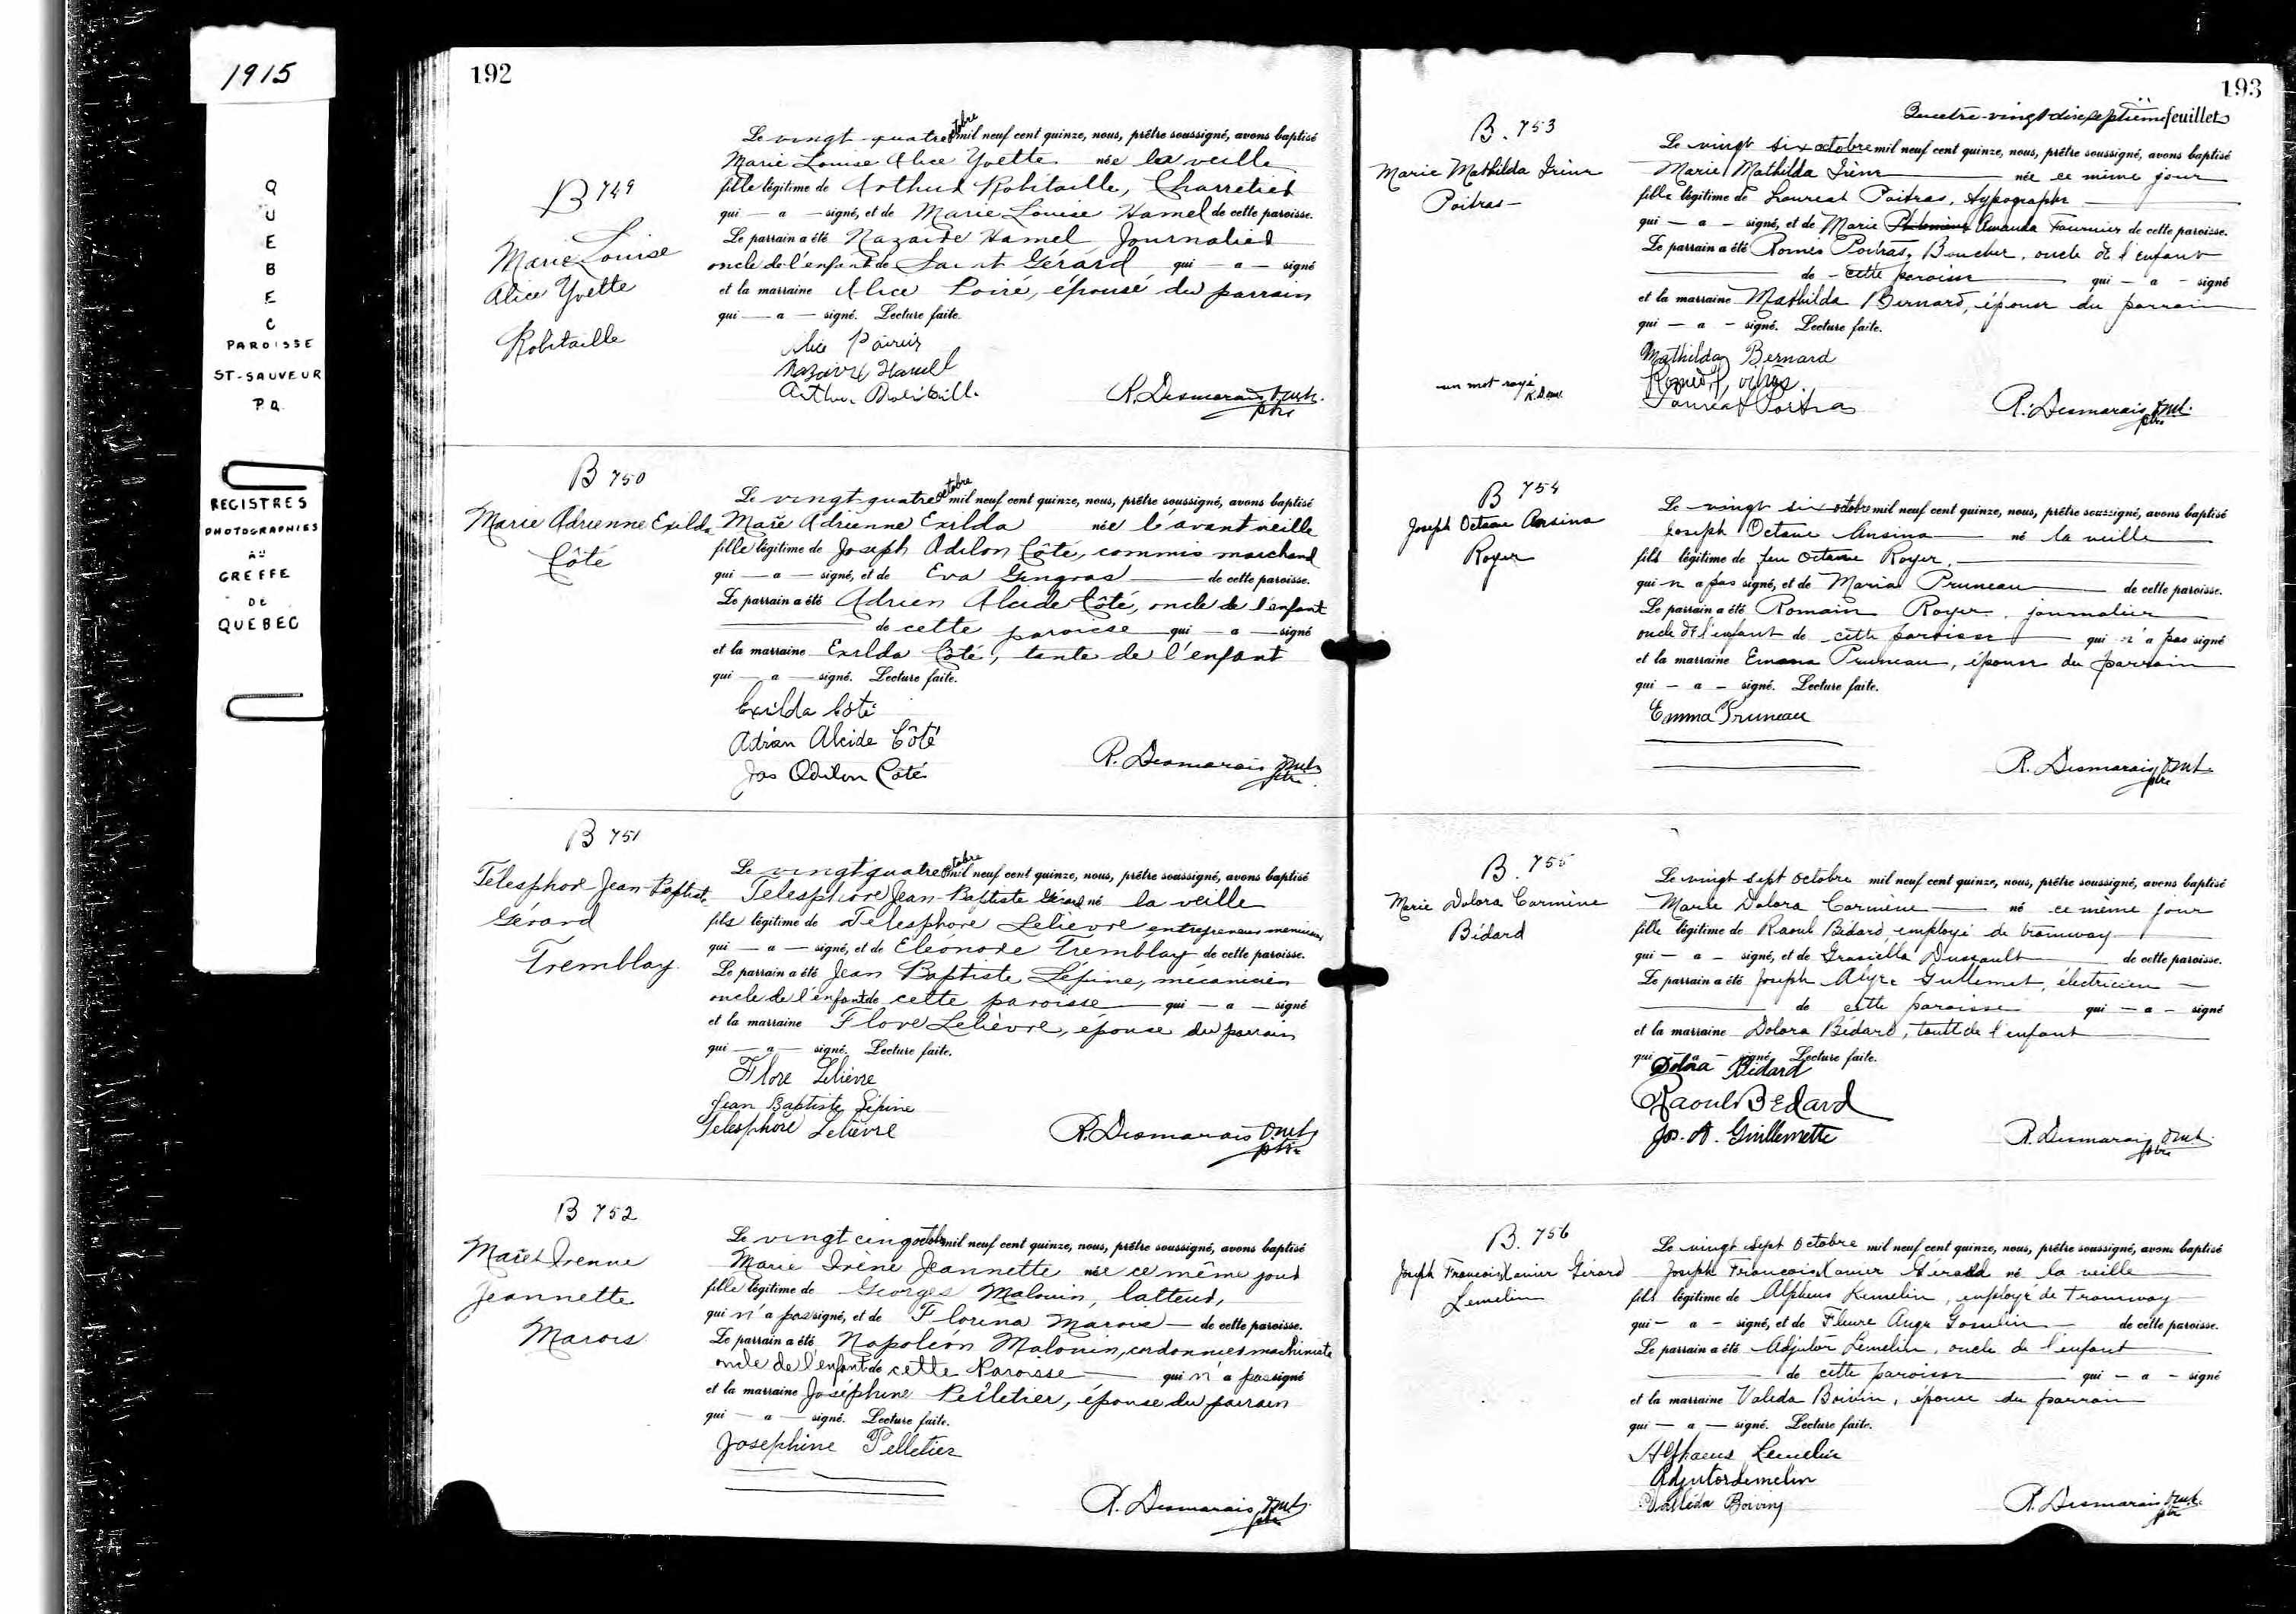 1915
QUEBEC
PAROISSE
ST-SAUVEUR
P.Q.
REGISTRES
PHOTOGRAPHIES
AU
GREFFE
DE
QUEBEC
192
B 749
Marie Louise
Alice Yvette
Robitaille
Le vingt quatre octobre mil neuf cent quinze, nous, prêtre soussigné, avons baptisé
Marie Louise Alice Yvette née la veille
fille légitime de Arthur Robitaille, Charretier
qui — a — signé, et de Marie Louise Hamel de cette paroisse.
Le parrain a été Nazaire Hamel Journalier
oncle de l'enfant de Saint Gérard qui — a — signé
et la marraine Alice Poiré, épouse du parrain
qui — a — signé. Lecture faite.
Alice Poirier
Nazaire Hamel
Arthur Robitaille
R. Desmarais o.m.i.
ptre
B 750
Marie Adrienne Exilda
Côté
Le vingt-quatre octobre mil neuf cent quinze, nous, prêtre soussigné, avons baptisé
Marie Adrienne Exilda née l'avant veille
fille légitime de Joseph Odilon Côté, commis marchand
qui — a — signé, et de Eva Gingras — de cette paroisse.
Le parrain a été Adrien Alcide Côté, oncle de l'enfant
— de cette paroisse qui — a — signé
et la marraine Exilda Côté, tante de l'enfant
qui — a — signé. Lecture faite.
Exilda Côté
Adrien Alcide Côté
Jos Odilon Côté
R. Desmarais o.m.i.
ptre
B 751
Télesphore Jean-Baptiste
Gérard
Tremblay
Le vingt quatre octobre mil neuf cent quinze, nous, prêtre soussigné, avons baptisé
Télesphore Jean-Baptiste Gérard né la veille
fils légitime de Télesphore Lelièvre entrepreneur menuisier
qui — a — signé, et de Eléonore Tremblay de cette paroisse.
Le parrain a été Jean Baptiste Lépine, mécanicien
oncle de l'enfant de cette paroisse — qui — a — signé
et la marraine Flore Lelièvre, épouse du parrain
qui — a — signé. Lecture faite.
Flore Lelièvre
Jean Baptiste Lépine
Telesphore Lelièvre
R. Desmarais o.m.i.
ptre
B 752
Marie Irenne
Jeannette
Marois
Le vingt cinq octobre mil neuf cent quinze, nous, prêtre soussigné, avons baptisé
Marie Irène Jeannette née ce même jour
fille légitime de Georges Malouin, latteur,
qui n'a pas signé, et de Florina Marois — de cette paroisse.
Le parrain a été Napoléon Malouin, cordonnier machiniste
oncle de l'enfant de cette Paroisse — qui n'a pas signé
et la marraine Joséphine Pelletier, épouse du parrain
qui — a — signé. Lecture faite.
Josephine Pelletier
R. Desmarais o.m.i.
ptre
193
Quatre-vingt dix septième feuillet
B. 753
Marie Mathilda Irène
Poitras
un mot rayé
R.D. omi
Le vingt six octobre mil neuf cent quinze, nous, prêtre soussigné, avons baptisé
Marie Mathilda Irène — née ce même jour
fille légitime de Lauréat Poitras, typographe
qui — a — signé, et de Marie Amanda Fournier de cette paroisse.
Le parrain a été Roméo Poitras, Boucher, oncle de l'enfant
— de cette paroisse — qui — a — signé
et la marraine Mathilda Bernard, épouse du parrain
qui — a — signé. Lecture faite.
Mathilda Bernard
Roméo Poitras
Lauréat Poitras
R. Desmarais o.m.i.
ptre
B 754
Joseph Octave Ansina
Royer
Le vingt six octobre mil neuf cent quinze, nous, prêtre soussigné, avons baptisé
Joseph Octave Ansina né la veille
fils légitime de feu Octave Royer,
qui n'a pas signé, et de Maria Pruneau — de cette paroisse.
Le parrain a été Romain Royer, journalier
oncle de l'enfant de cette paroisse — qui n'a pas signé
et la marraine Emma Pruneau, épouse du parrain
qui — a — signé. Lecture faite.
Emma Pruneau
R. Desmarais o.m.i.
ptre
B. 755
Marie Dolora Carmène
Bédard
Le vingt sept octobre mil neuf cent quinze, nous, prêtre soussigné, avons baptisé
Marie Dolora Carmène — né ce même jour
fille légitime de Raoul Bédard employé de tramway
qui — a — signé, et de Graziella Dussault — de cette paroisse.
Le parrain a été Joseph Alyre Guillemet, électricien —
— de cette paroisse qui — a — signé
et la marraine Dolora Bédard, tante de l'enfant
qui — a — signé. Lecture faite.
Dolora Bédard
Raoul Bedard
Jos. A. Guillemette
R. Desmarais o.m.i.
ptre
B. 756
Joseph François Xavier Gérard
Lemelin
Le vingt sept octobre mil neuf cent quinze, nous, prêtre soussigné, avons baptisé
Joseph François Xavier Gérard né la veille
fils légitime de Alpheus Lemelin, employé de Tramway
qui — a — signé, et de Fleure Ange Gosselin — de cette paroisse.
Le parrain a été Adjutor Lemelin, oncle de l'enfant
— de cette paroisse — qui — a — signé
et la marraine Valida Boivin, épouse du parrain
qui — a — signé. Lecture faite.
Alphaeus Lemelin
Adjutor Lemelin
Valida Boivin
R. Desmarais o.m.i.
ptre